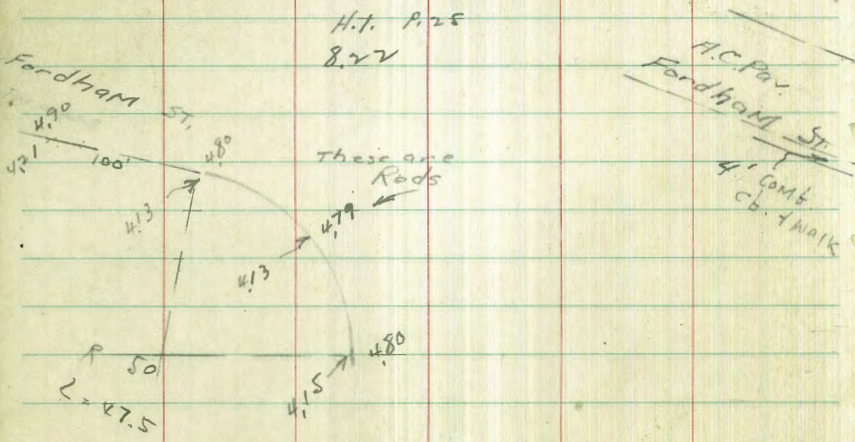 H.I. P.25
8.22
Fordham ST.
4.90
4.21
100'
4.80
4.13
These are
Rods
4.79
4.13
4.80
4.15
R 50
L = 47.5
A.C. Pav.
Fordham ST.
4' Comb
Cb. + Walk